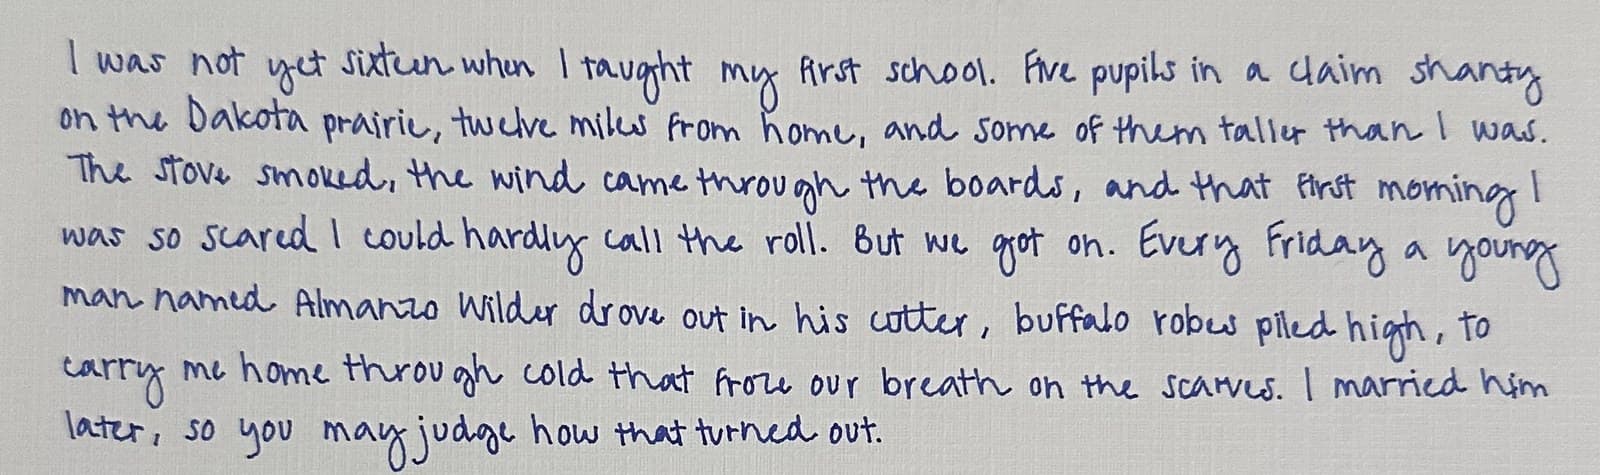 I was not yet sixteen when I taught my first school. Five pupils in a claim shanty
on the Dakota prairie, twelve miles from home, and some of them taller than I was.
The stove smoked, the wind came through the boards, and that first morning I
was so scared I could hardly call the roll. But we got on. Every Friday a young
man named Almanzo Wilder drove out in his cutter, buffalo robes piled high, to
carry me home through cold that froze our breath on the scarves. I married him
later, so you may judge how that turned out.